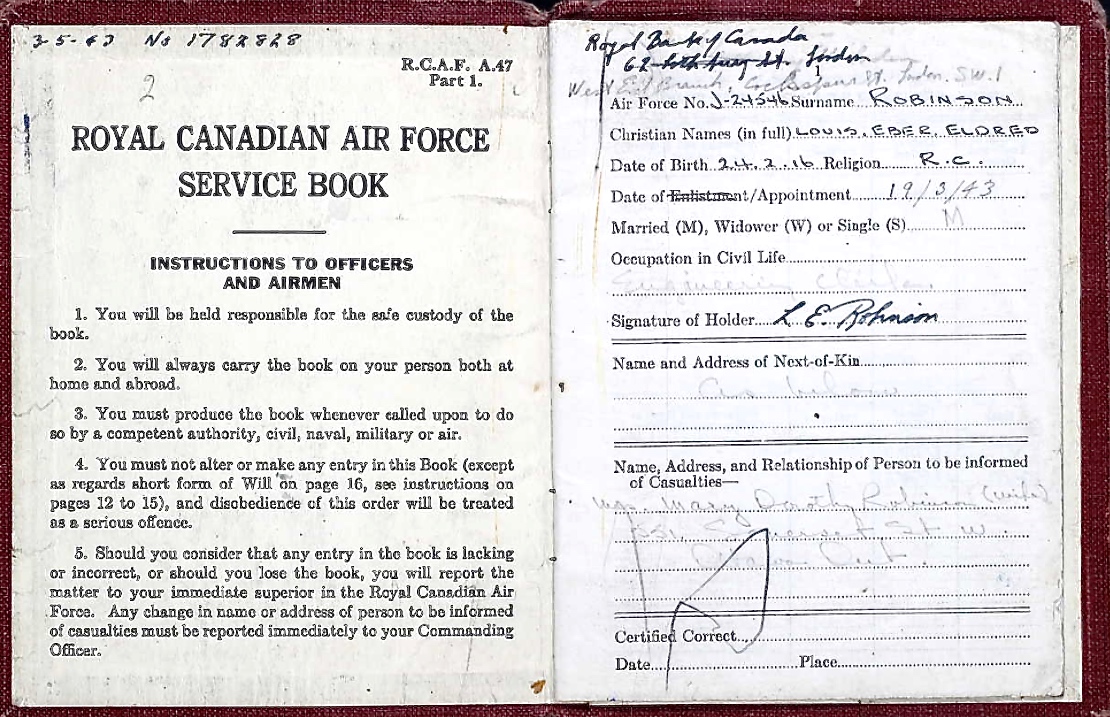 3-5-43 No 1782828
R.C.A.F. A.47
Part 1.
2
ROYAL CANADIAN AIR FORCE
SERVICE BOOK
INSTRUCTIONS TO OFFICERS
AND AIRMEN
1. You will be held responsible for the safe custody of the
book.
2. You will always carry the book on your person both at
home and abroad.
3. You must produce the book whenever called upon to do
so by a competent authority, civil, naval, military or air.
4. You must not alter or make any entry in this Book (except
as regards short form of Will on page 16, see instructions on
pages 12 to 15), and disobedience of this order will be treated
as a serious offence.
5. Should you consider that any entry in the book is lacking
or incorrect, or should you lose the book, you will report the
matter to your immediate superior in the Royal Canadian Air
Force. Any change in name or address of person to be informed
of casualties must be reported immediately to your Commanding
Officer.
Royal Bank of Canada
62 St. London
1
West End Branch, Cockspur St. London. S.W.1
Air Force No. J-24546 Surname ROBINSON
Christian Names (in full) LOUIS. EBER. ELDRED
Date of Birth 24.2.16 Religion R.C.
Date of Enlistment/Appointment 19/3/43
Married (M), Widower (W) or Single (S) M
Occupation in Civil Life
Engineering
Signature of Holder L E. Robinson
Name and Address of Next-of-Kin
Name, Address, and Relationship of Person to be informed
of Casualties—
Mrs. Mary Dorothy Robinson (wife)
Somerset St. W.
Ottawa Ont.
Certified Correct
Date Place